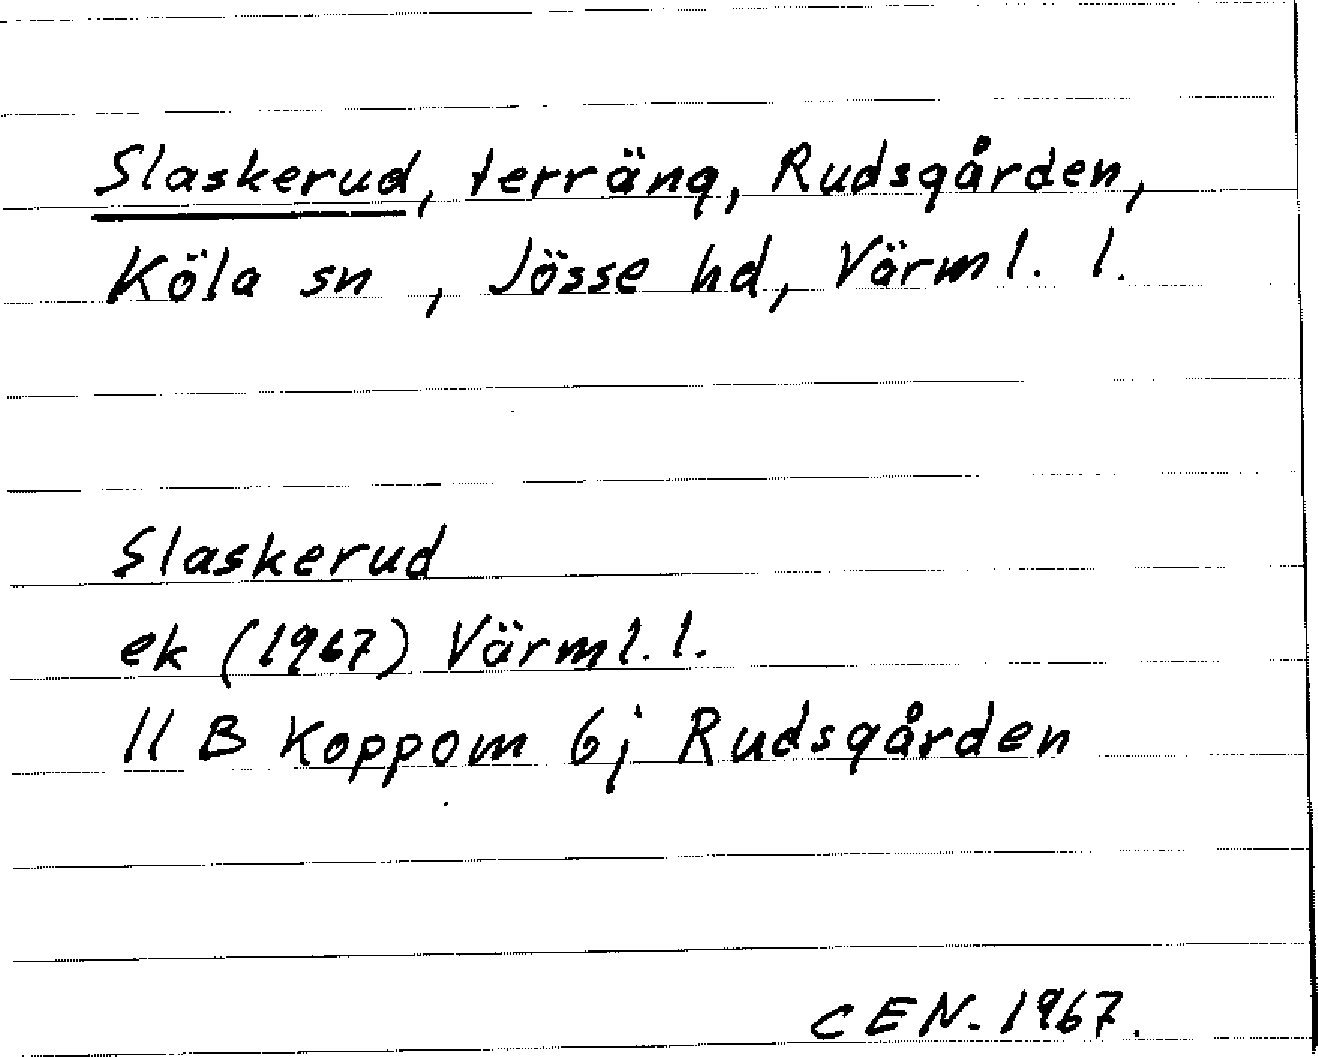 Slaskerud, terräng, Rudsgården,
Köla sn, Jösse hd, Värml. l.
Slaskerud
ek (1967) Värml. l.
11 B Koppom 6j Rudsgården
CEN. 1967.